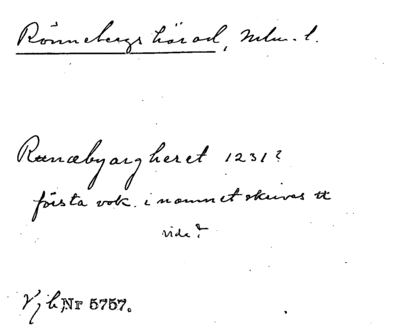 Rönnebergs härad, Mlm. l.
Rænæbyargheret 1231?
första vok. i namnet skrives æ
vide?
Nr 5757.